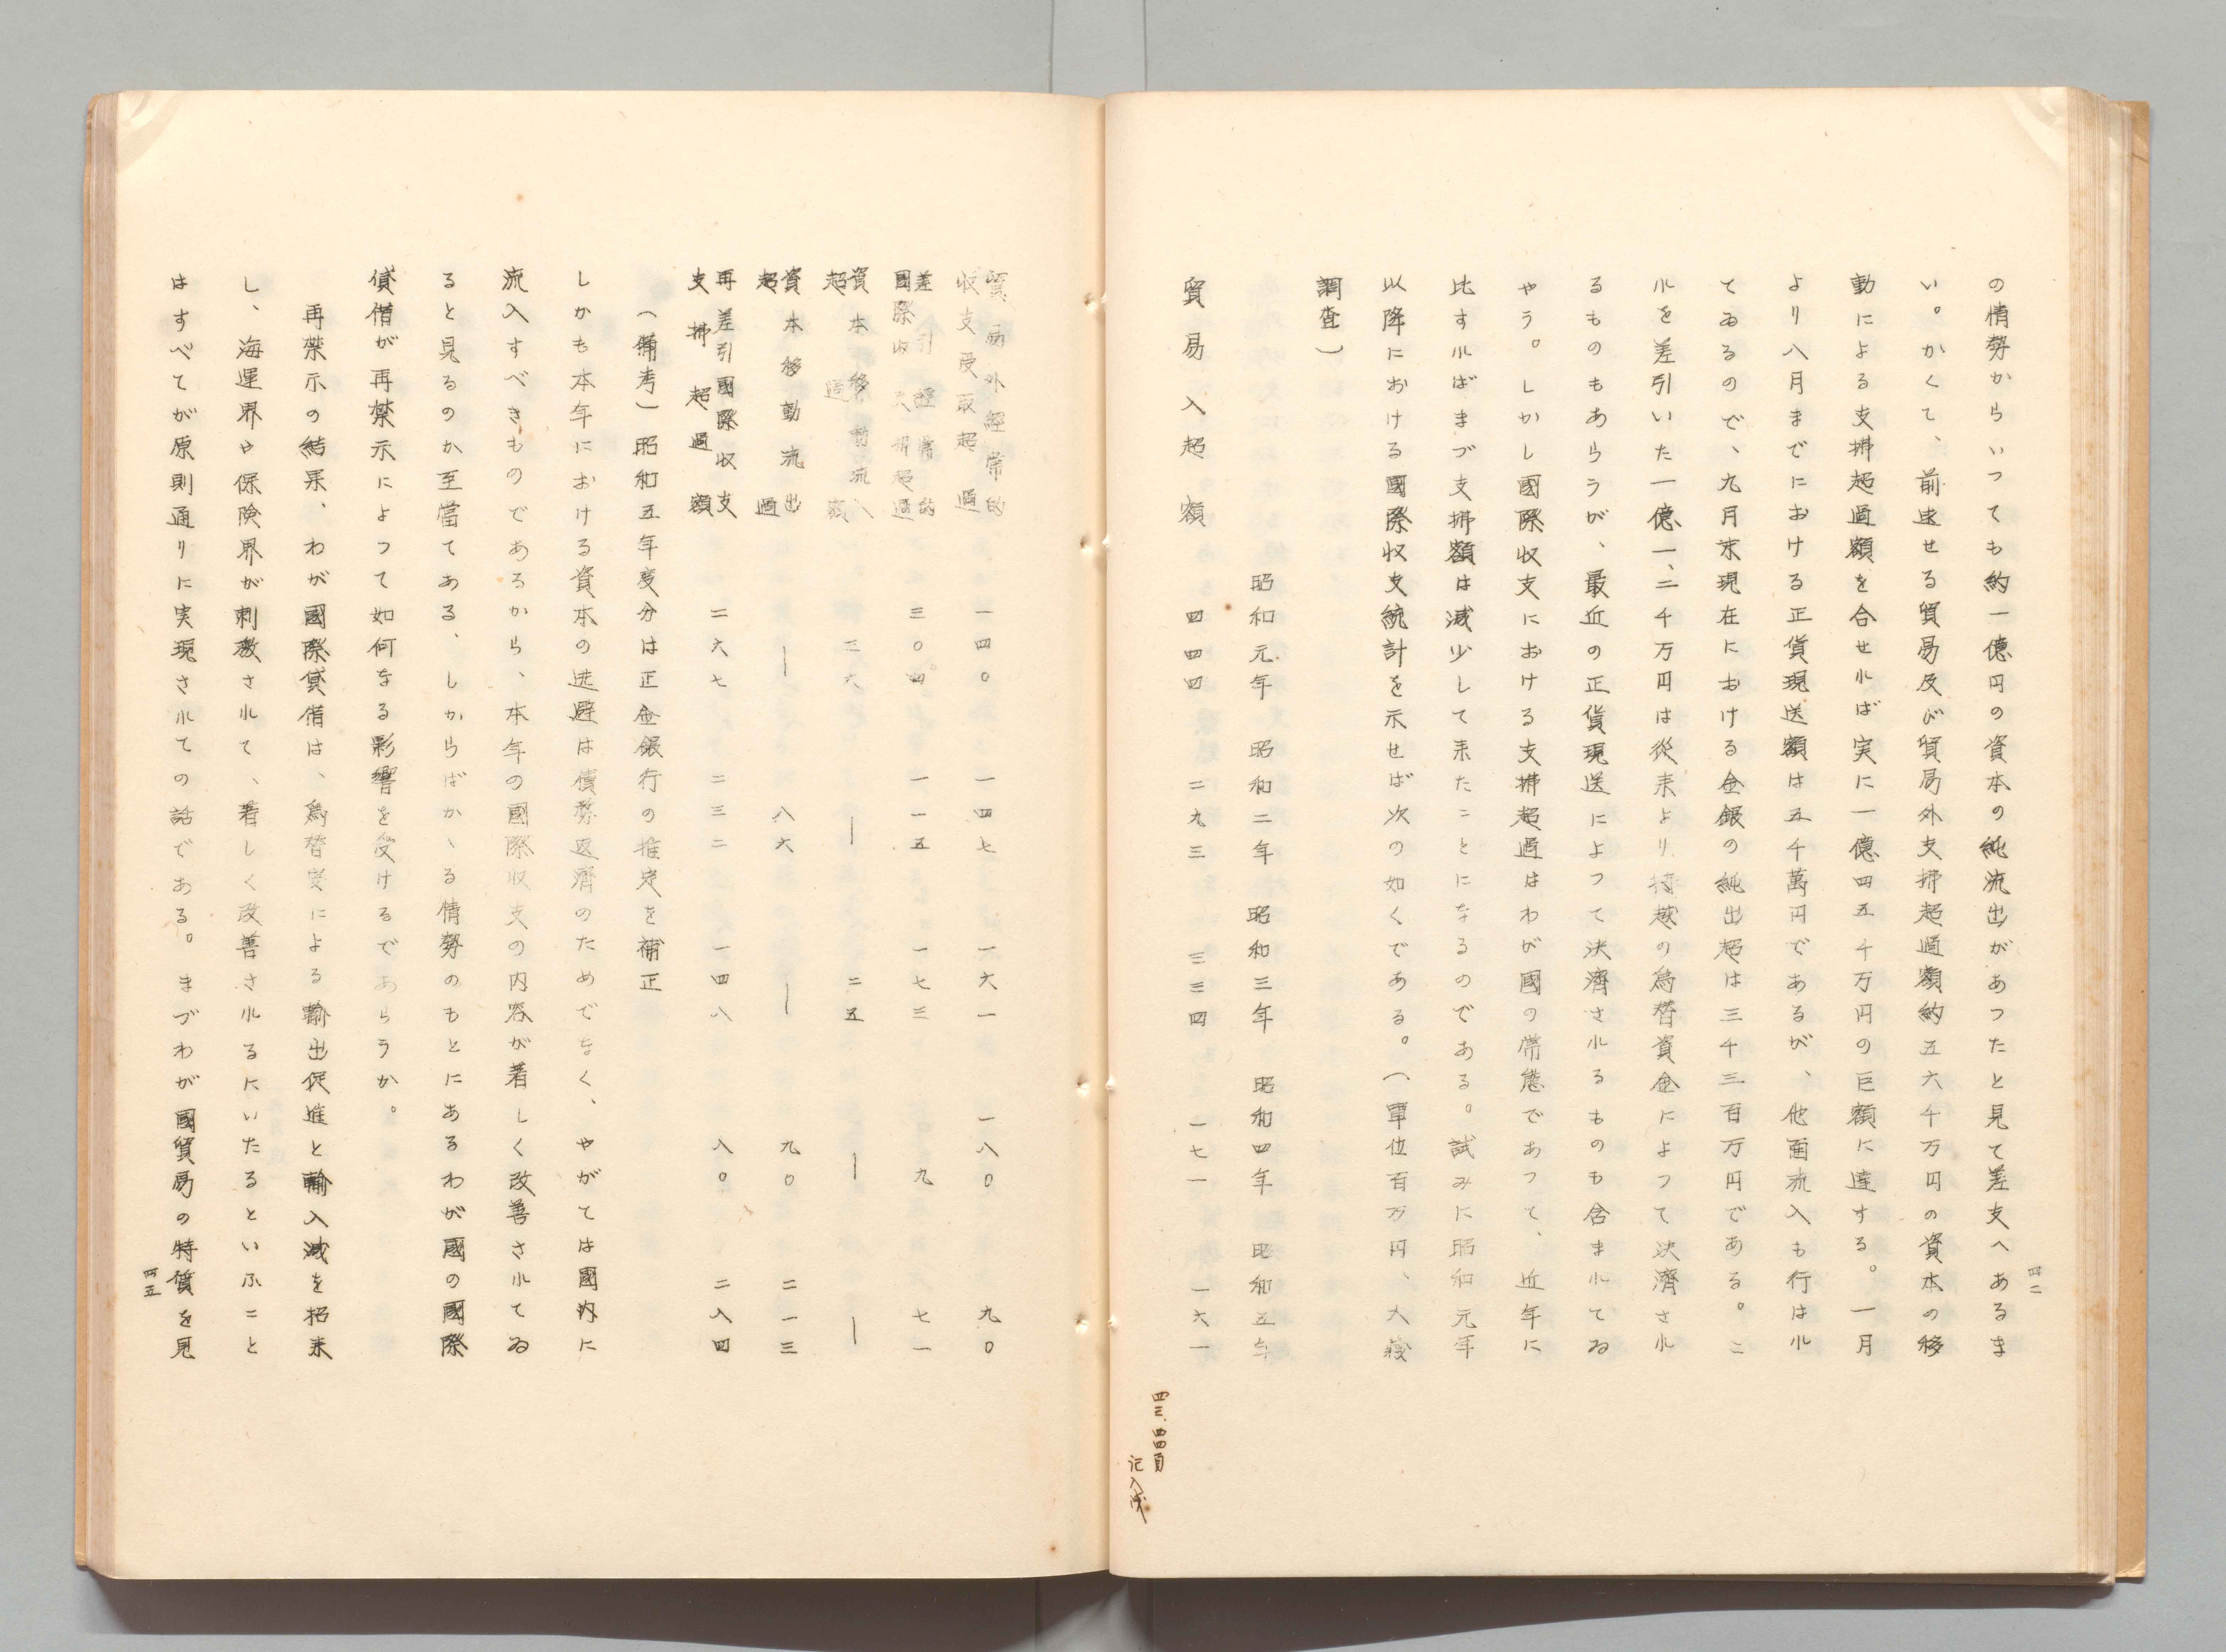 四二
の情勢からいつても約一億円の資本の純流出があつたと見て差支へあるま
い。かくて、前述せる貿易及び貿易外支拂超過額約五六千万円の資本の移
動による支拂超過額を合せれば実に一億四五千万円の巨額に達する。一月
より八月までにおける正貨現送額は五千萬円であるが、他面流入も行はれ
てゐるので、九月末現在における金銀の純出超は三千三百万円である。こ
れを差引いた一億一、二千万円は従来より持越の爲替資金によつて決済され
るものもあらうが、最近の正貨現送によつて決済されるものも含まれてゐ
やう。しかし國際收支における支拂超過はわが國の常態であつて、近年に
比すればまづ支拂額は減少して来たことになるのである。試みに昭和元年
以降における國際收支統計を示せば次の如くである。（單位百万円、大藏
調査）
昭和元年 昭和二年 昭和三年 昭和四年 昭和五年
貿易入超額 四四四 二九三 三三四 一七一 一六一
四三、四四頁
記入済
貿易外経常的
收支受取超過 一四〇 一四七 一六一 一八〇 九〇
差引経常的
國際收支拂超過 三〇四 一一五 一七三 九 七一
資本移動流入
超過額 三六 ー 二五 ー ー
資本移動流出
超過 ー 八六 ー 九〇 二一三
再差引國際收支
支拂超過額 二六七 二三二 一四八 八〇 二八四
（備考）昭和五年度分は正金銀行の推定を補正
しかも本年における資本の逃避は債務返濟のためでなく、やがては國内に
流入すべきものであるから、本年の國際收支の内容が著しく改善されてゐ
ると見るのか至當てある、しからばかゝる情勢のもとにあるわが國の國際
貸借が再禁示によつて如何なる影響を受けるであらうか。
再禁示の結果、わが國際貸借は、爲替安による輸出促進と輸入減を招来
し、海運界や保険界が刺激されて、著しく改善されるにいたるといふこと
はすべてが原則通りに実現されての話である。まづわが國貿易の特質を見
四五